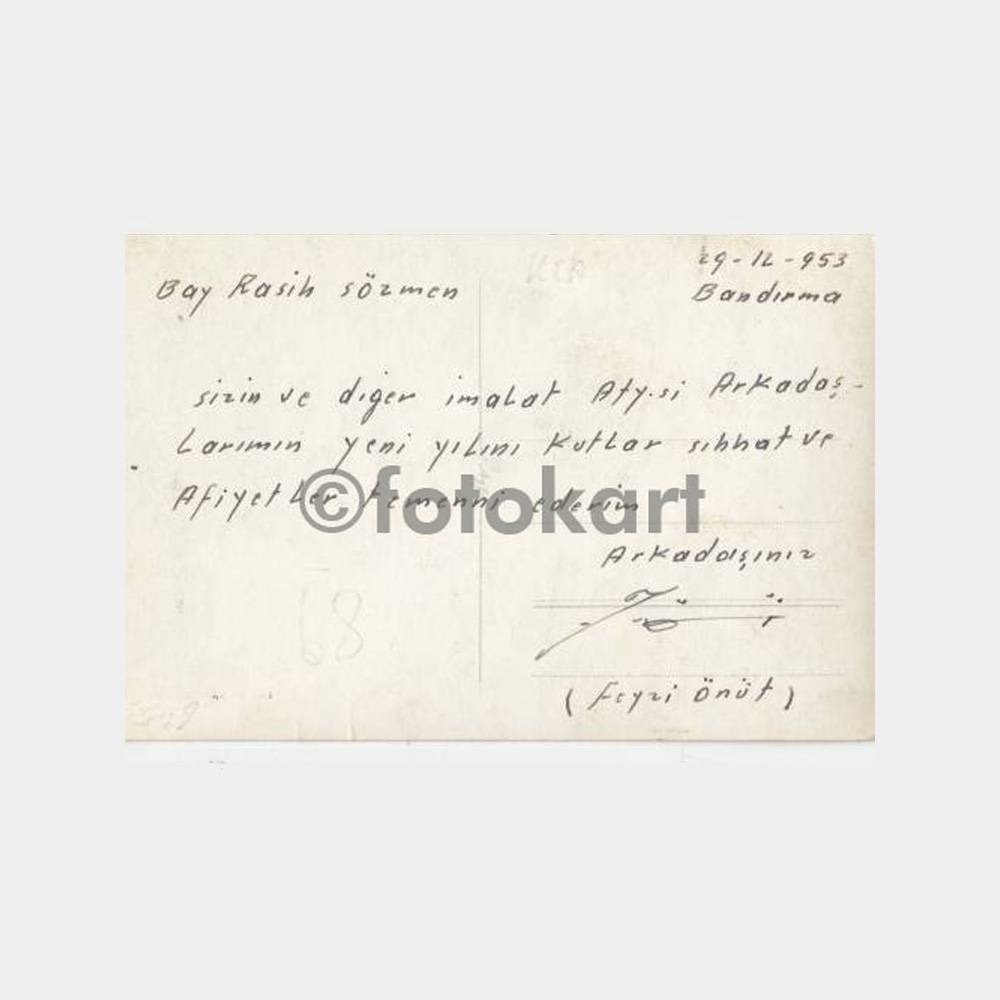 29-12-953
Bay Rasih sözmen
Bandırma
sizin ve diğer imalat Aty.si Arkadaş-
Larımın yeni yılını kutlar sıhhat ve
Afiyetler temenni ederim
©fotokart
Arkadaşınız
(Feyzi önüt)
68